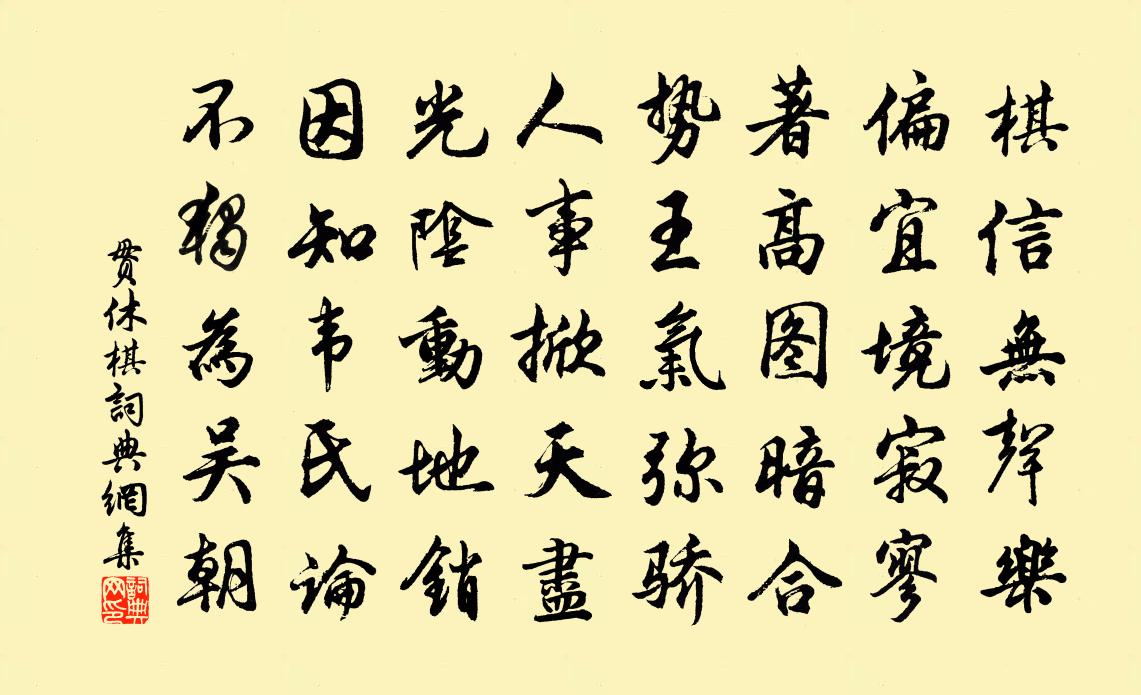 棋信無聲樂
偏宜境寂寥
著高图暗合
势王氣弥骄
人事掀天盡
光陰動地銷
因知韦氏論
不獨為吴朝
贯休棋詞典網集
詞典網印